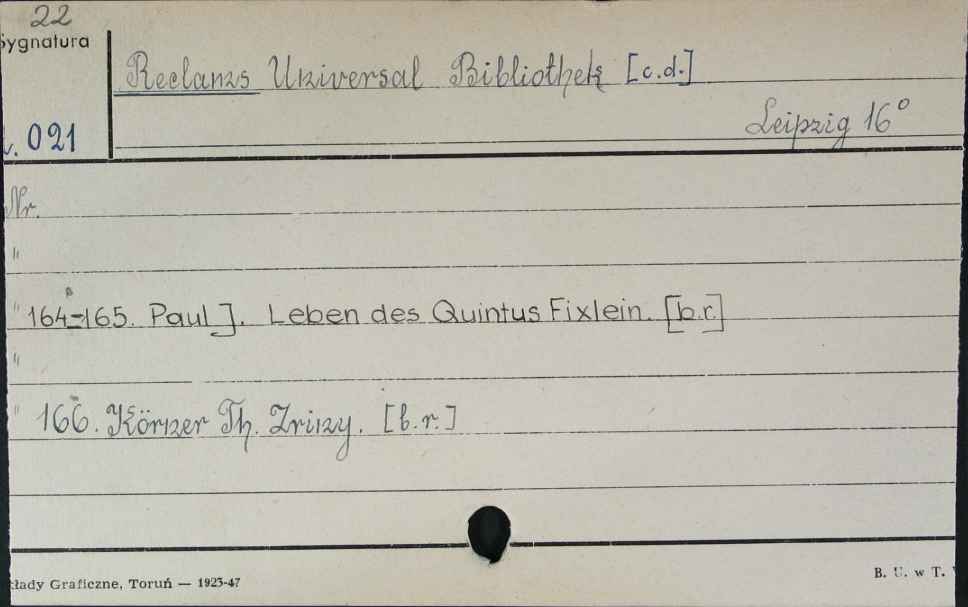 22
Sygnatura
Reclams Universal Bibliothek [c.d.]
021
Leipzig 16°
Nr.
"
" 164-165. Paul J. Leben des Quintus Fixlein. [b.r.]
"
" 166. Körner Th. Zriny. [b.r.]
kłady Graficzne, Toruń — 1923-47
B. U. w T.